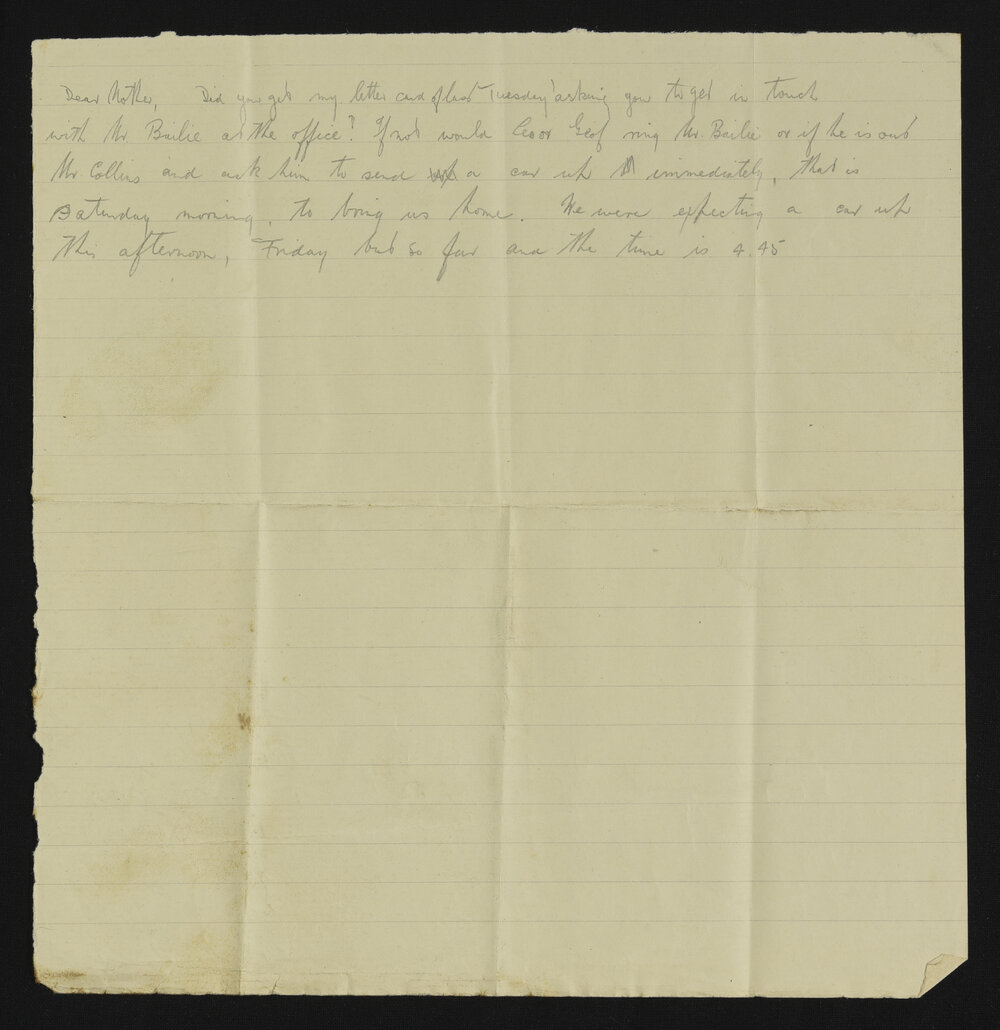 Dear Mother, Did you get my letter card of last Tuesday asking you to get in touch
with Mr. Bailie at the office? If not would or Geof ring Mr. Bailie or if he is out
Mr Collins and ask him to send a car up immediately, that is
Saturday morning, to bring us home. We were expecting a car up
this afternoon, Friday but so far and the time is 4.45